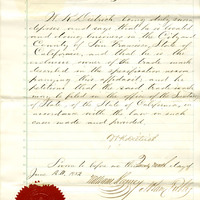 W. R. Dietrich being duly sworn
deposes and says that he is located
and doing business in the City and
County of San Francisco, State of
California, and that he is the
exclusive owner of the trade mark
described in the specification accom-
panying this affidavit, and he
petitions that the said trade mark
may be filed in the office of the Secretary
of State, of the State of California, in
accordance with the law in such
case made and provided.
Sworn to before me this day of
June A.D. 1882